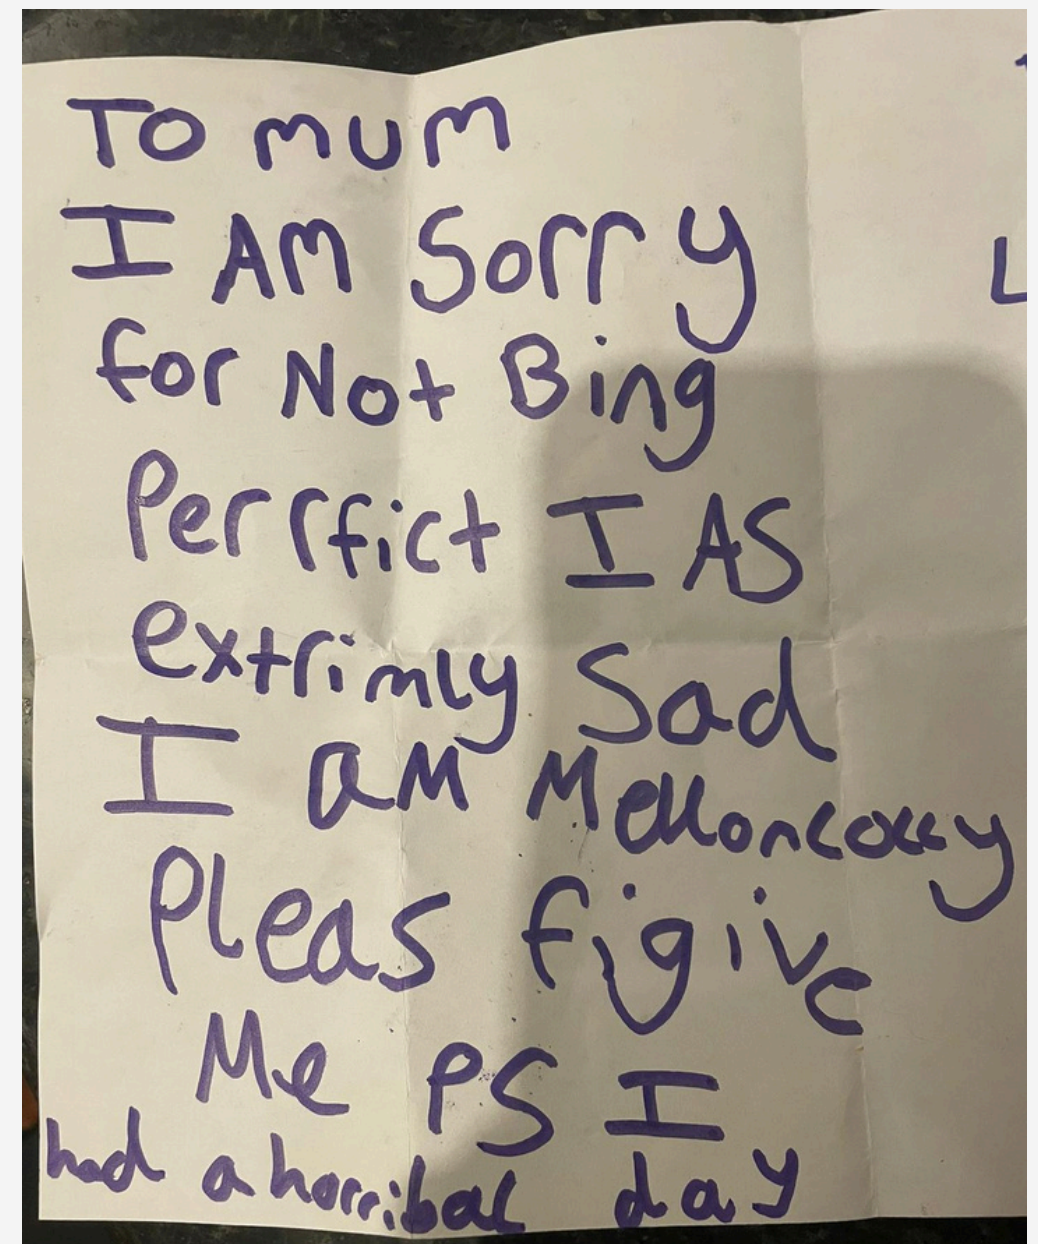 To mum
I AM Sorry
for Not Bing
Perrfict I AS
extrimly Sad
I aM Melloncolly
Pleas figive
Me PS I
had a horribal day